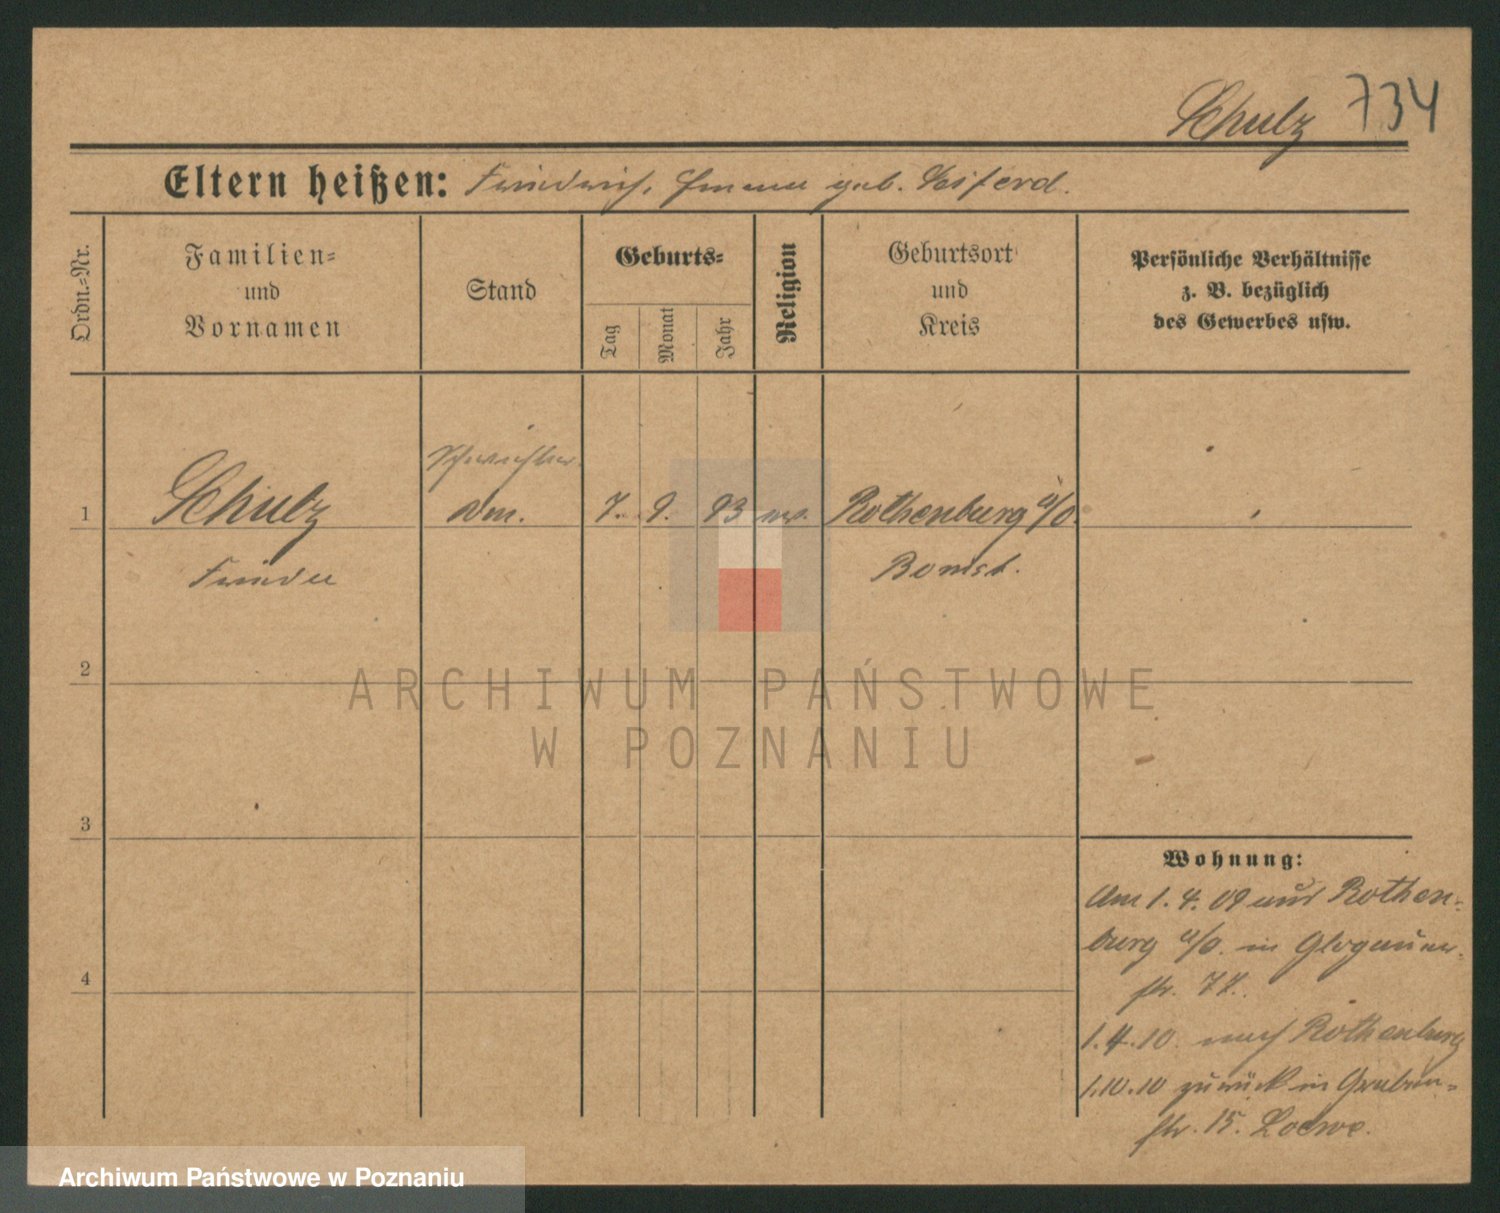 Schulz 734
Eltern heißen: Friedrich, Emma geb.
Ordn.-Nr.
Familien-
und
Vornamen
Stand
Geburts-
Tag
Monat
Jahr
Religion
Geburtsort
und
Kreis
Persönliche Verhältnisse
z. B. bezüglich
des Gewerbes usw.
1
Schulz
Frieda
7. 9. 93 ev.
Rothenburg a/O.
Bomst.
2
3
4
Wohnung:
Am 1.4.09 aus Rothen-
burg a/O. in Glogauer-
str. 77.
1.4.10. nach Rothenburg
1.10.10 zurück in Graben-
str. 15. Loewe.
ARCHIWUM PAŃSTWOWE
W POZNANIU
Archiwum Państwowe w Poznaniu